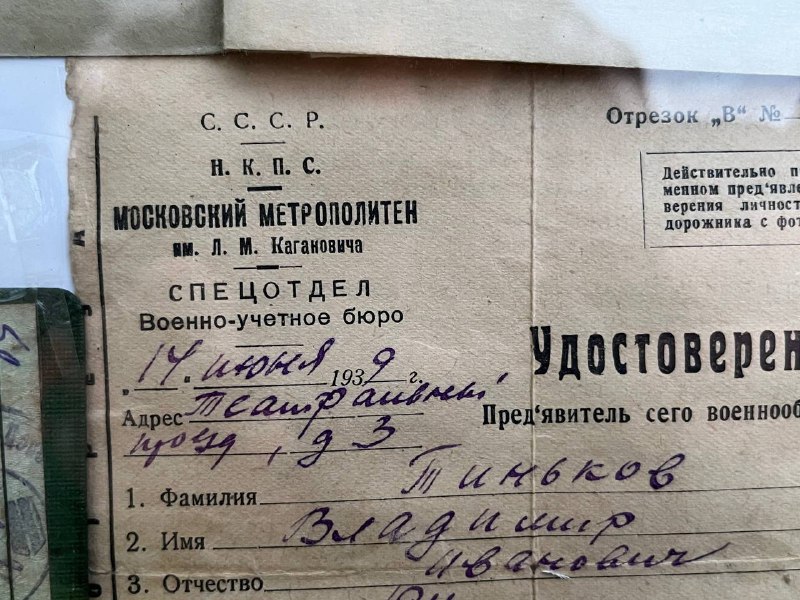 С. С. С. Р.
Н. К. П. С.
МОСКОВСКИЙ МЕТРОПОЛИТЕН
им. Л. М. Кагановича
СПЕЦОТДЕЛ
Военно-учетное бюро
„14„ июня 1939 г.
Адрес Театральный
проезд, д 3
1. Фамилия Тиньков
2. Имя Владимир
3. Отчество Иванович
Отрезок „В" №
Действительно п
менном пред'явле
верения личност
дорожника с фот
Удостоверен
Пред'явитель сего военнооб